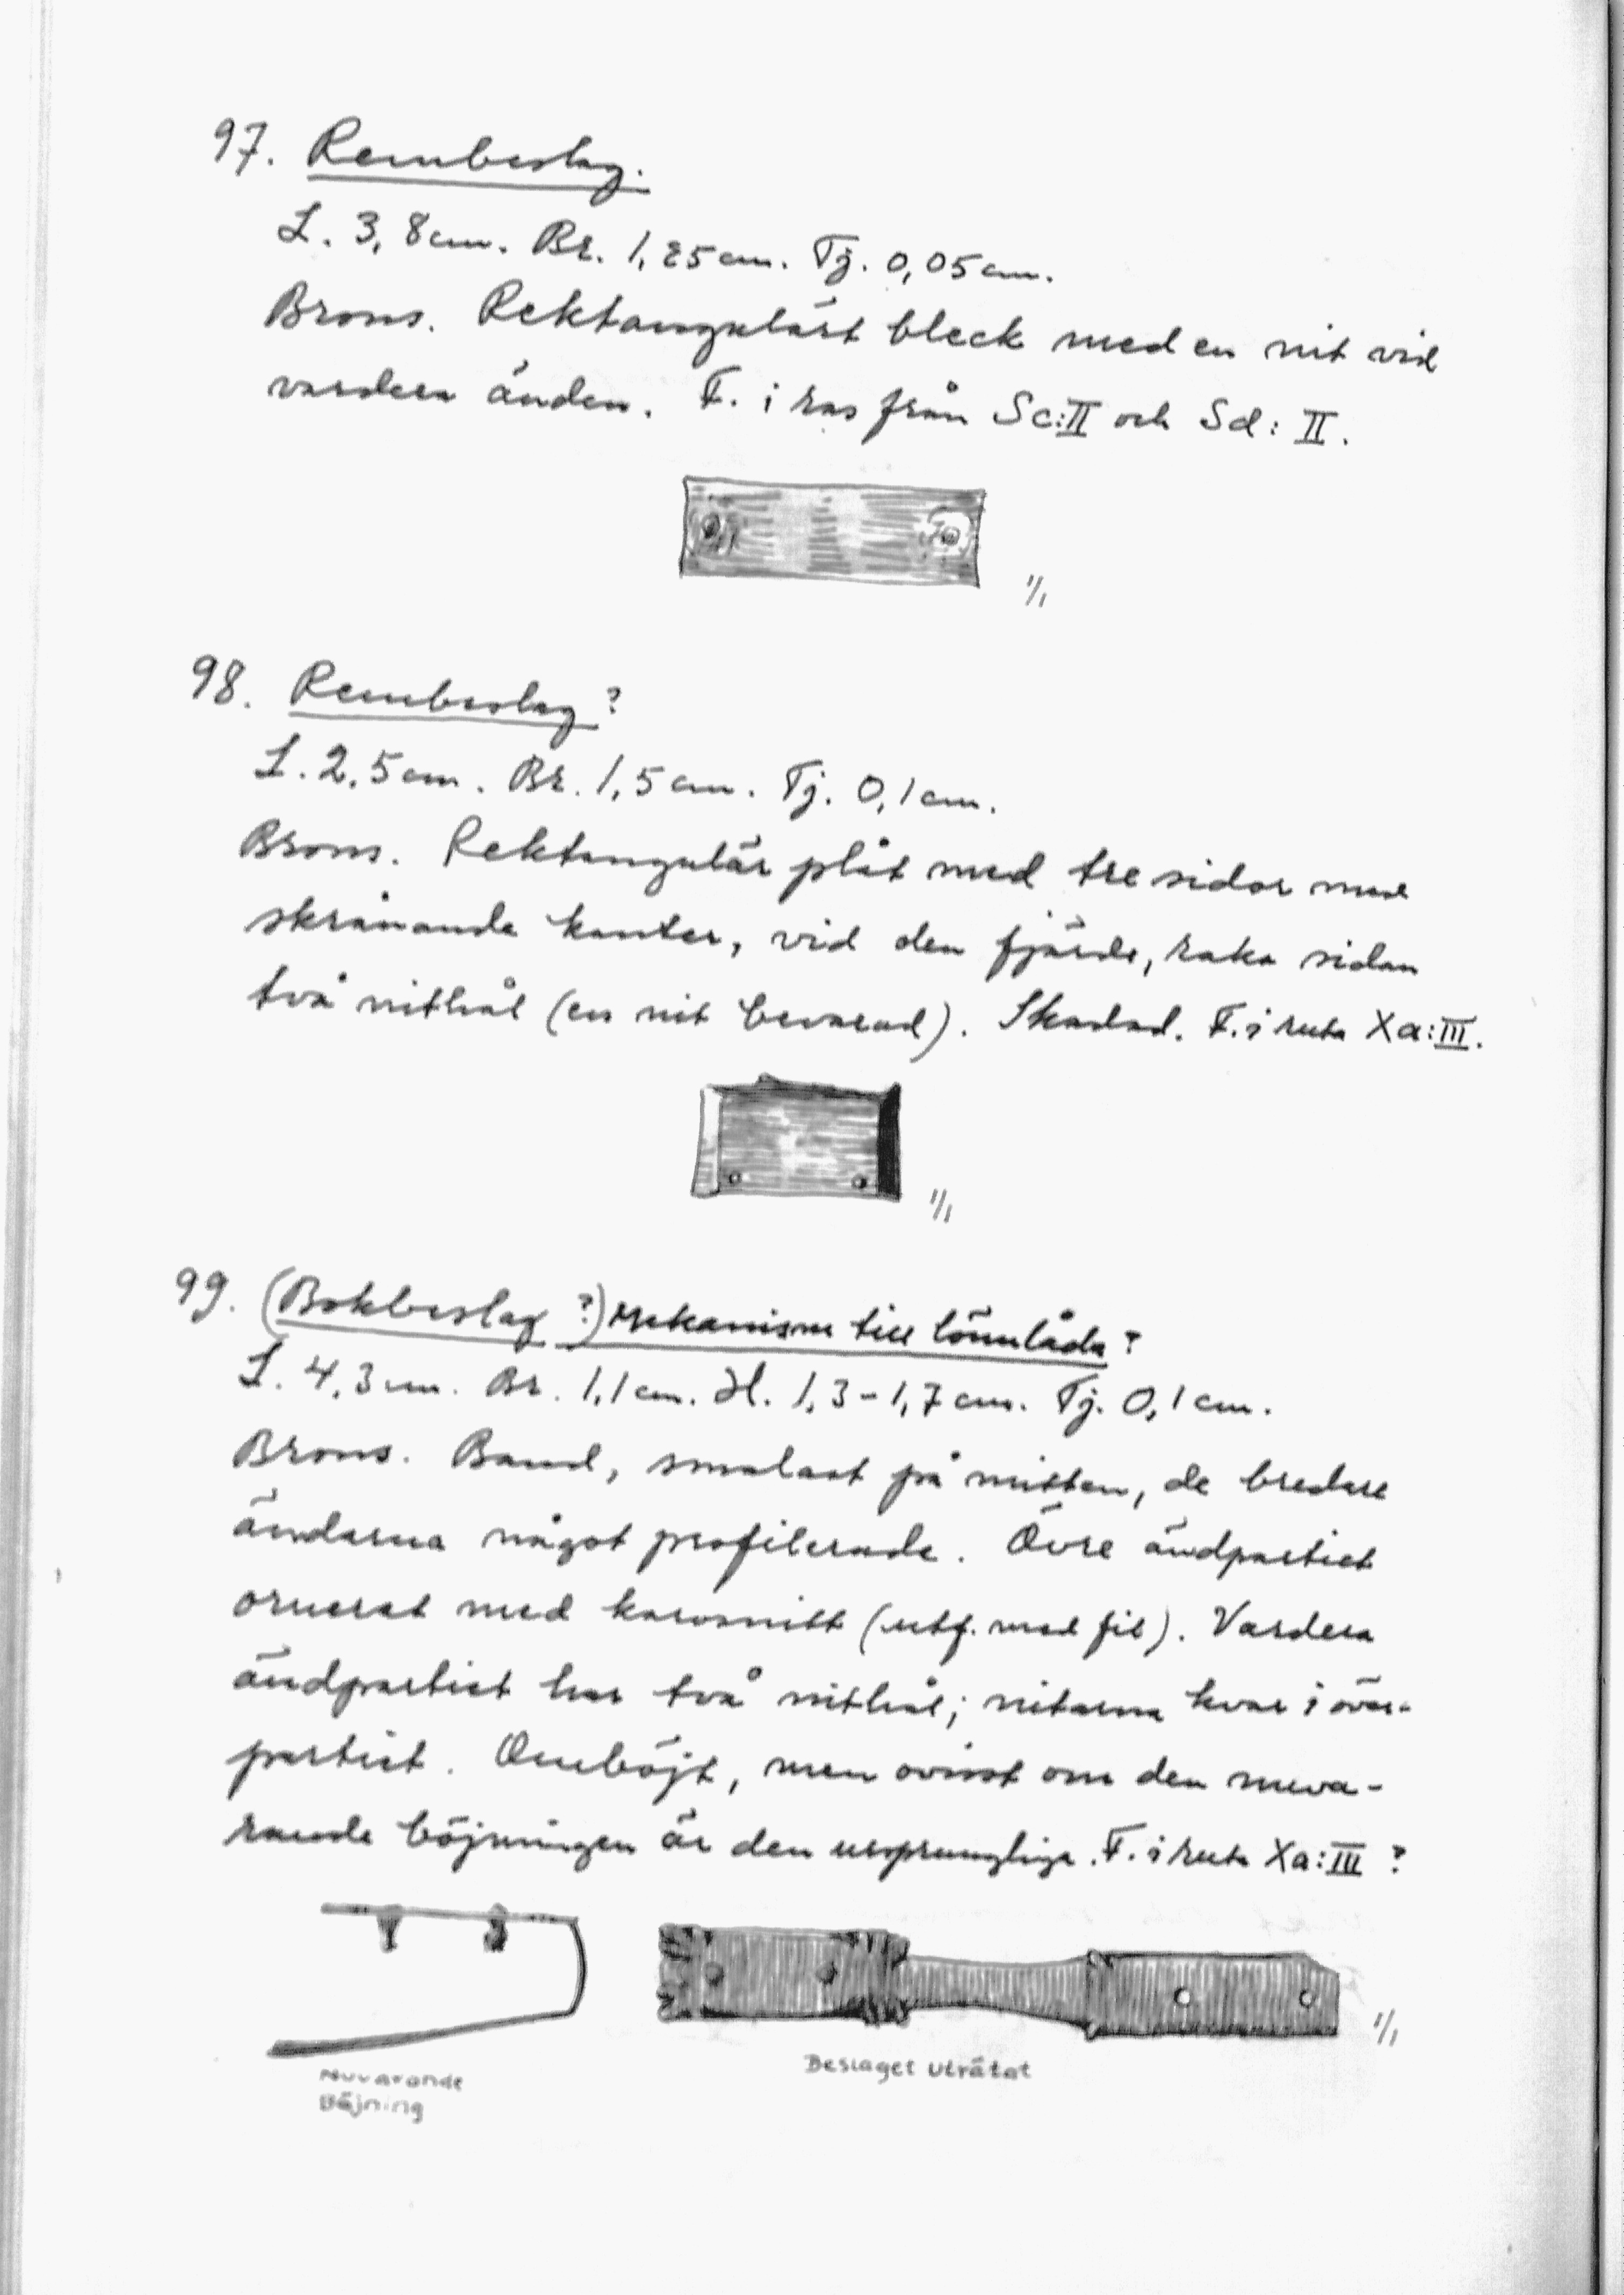 97. Rembeslag.
L. 3,8cm. Br. 1,25cm. Tj. 0,05cm.
Brons. Rektangulärt bleck med en nit vid
vardera änden. F. i ras från Sc:II och Sd:II.
1/1
98. Rembeslag?
L. 2,5cm. Br. 1,5cm. Tj. 0,1cm.
Brons. Rektangulär plåt med tre sidor med
skrånande kanter, vid den fjärde, raka sidan
två nithål (en nit bevarad). Skadad. F. i ruta Xa:III.
1/1
99. (Bokbeslag ?) Mekanism till lönnlåda?
L. 4,3cm. Br. 1,1cm. H. 1,3-1,7cm. Tj. 0,1cm.
Brons. Band, smalast på mitten, de bredare
ändarna något profilerade. Övre ändpartiet
ornerat med karvsnitt (utf. med fil). Vardera
ändpartiet har två nithål; nitarna kvar i över-
partiet. Omböjt, men ovisst om den nuva-
rande böjningen är den ursprungliga. F. i ruta Xa:III ?
1/1
Nuvarande
Böjning
Beslaget uträtat